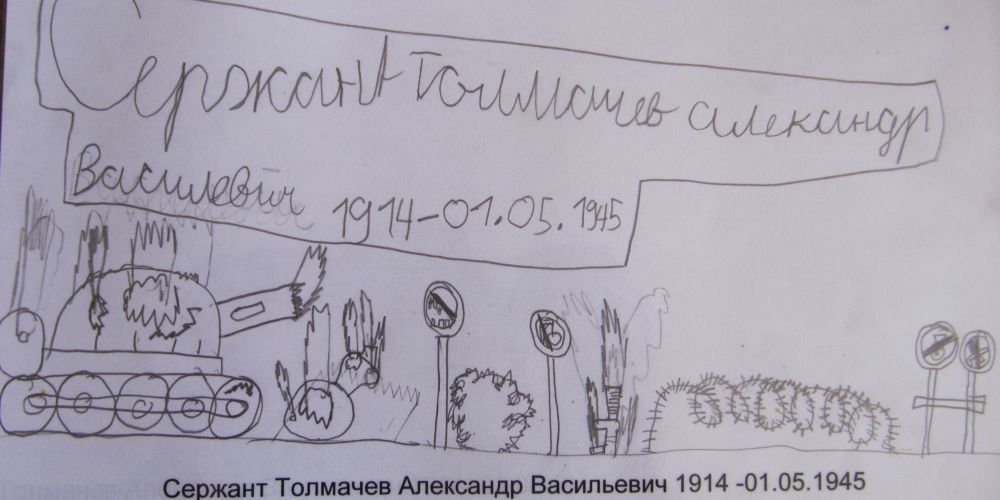 Сержант Толмачев александр
Василевич 1914-01.05.1945
Сержант Толмачев Александр Васильевич 1914 -01.05.1945